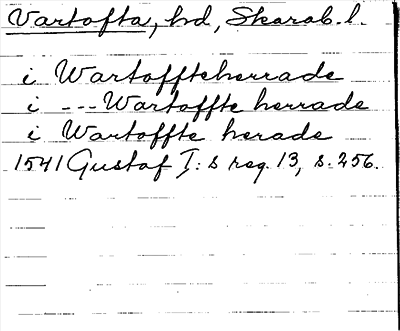 Vartofta, hd, Skarab. l.
i Wartoffteherrade
i --- Wartoffte herrade
i Wartoffte herade
1541 Gustaf I: s reg. 13, s. 256.